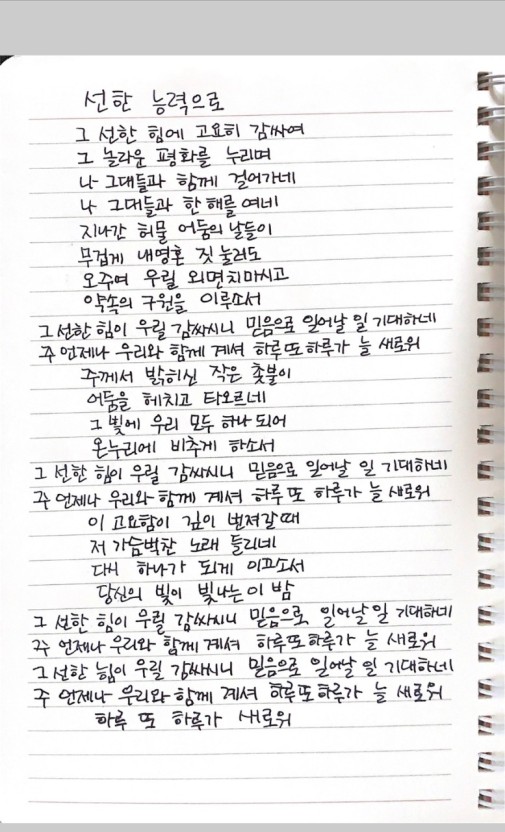 선한 능력으로
그 선한 힘에 고요히 감싸여
그 놀라운 평화를 누리며
나 그대들과 함께 걸어가네
나 그대들과 한 해를 여네
지나간 허물 어둠의 날들이
무겁게 내영혼 짓눌러도
오주여 우릴 외면치마시고
약속의 구원을 이루소서
그 선한 힘이 우릴 감싸시니 믿음으로 일어날 일 기대하네
주 언제나 우리와 함께 계셔 하루또하루가 늘 새로워
주께서 밝히신 작은 촛불이
어둠을 헤치고 타오르네
그 빛에 우리 모두 하나 되어
온누리에 비추게 하소서
그 선한 힘이 우릴 감싸시니 믿음으로 일어날 일 기대하네
주 언제나 우리와 함께 계셔 하루 또 하루가 늘 새로워
이 고요함이 깊이 번져갈때
저 가슴벅찬 노래 들리네
다시 하나가 되게 이끄소서
당신의 빛이 빛나는 이 밤
그 선한 힘이 우릴 감싸시니 믿음으로 일어날 일 기대하네
주 언제나 우리와 함께 계셔 하루또하루가 늘 새로워
그 선한 힘이 우릴 감싸시니 믿음으로 일어날 일 기대하네
주 언제나 우리와 함께 계셔 하루또하루가 늘 새로워
하루 또 하루가 새로워